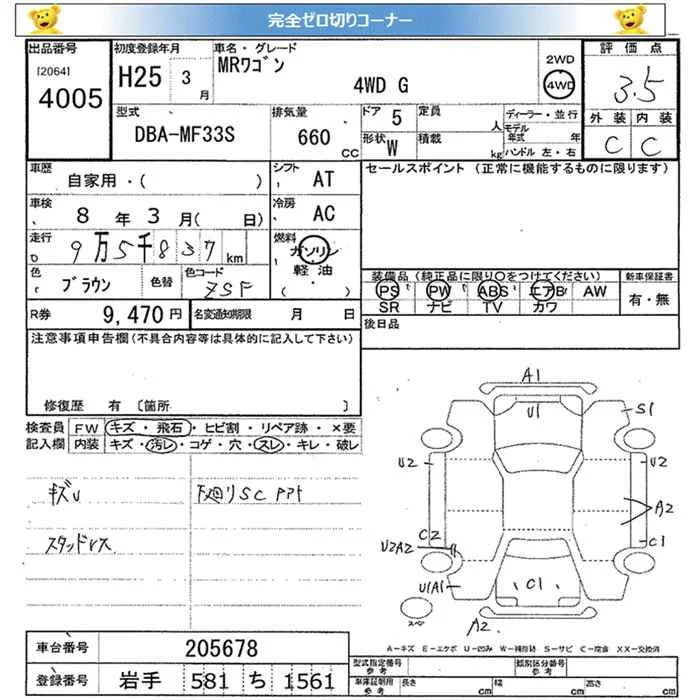 完全ゼロ切りコーナー
出品番号 初度登録年月 車名・グレード 評価点
[2064] H25 3月 MRワゴン 4WD G 2WD 4WD 3.5
4005
型式 排気量 ドア 5 定員 人 ディーラー・並行 外装 内装
DBA-MF33S 660 CC 形状 W 積載 kg モデル年式 年 ハンドル 左・右 C C
車歴 自家用・( ) シフト AT セールスポイント (正常に機能するものに限ります)
車検 8年 3月( 日) 冷房 AC
走行 9万5千837 km 燃料 ガソリン 軽油 ( )
色 ブラウン 色替 色コード ZSF 装備品 (純正品に限り○をつけてください) 新車保証書
PS PW ABS エアB AW 有・無
SR ナビ TV カワ
R券 9,470円 名変通知期限 月 日 後日品
注意事項申告欄(不具合内容等は具体的に記入して下さい)
修復歴 有 [箇所 ]
検査員 FW キズ・飛石・ヒビ割・リペア跡・×要
記入欄 内装 キズ・汚レ・コゲ・穴・スレ・キレ・破レ
キズU 下廻りSC PPT
スタッドレス
A1
U1 S1
U2 U2
A2
C2 C1
U2A2
U1A1 C1
スペア
A2
A-キズ E-エクボ U-凹み W-補修跡 S-サビ C-腐食 XX-交換済
車台番号 205678
登録番号 岩手 581 ち 1561
型式指定番号 参考 類別区分番号 参考
車庫証明用 参考 長さ cm 幅 cm 高さ cm